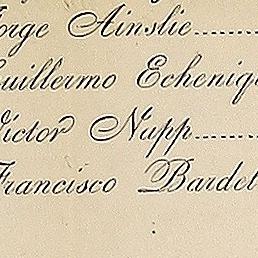 Jorge Ainslie........
Guillermo Echeniqu
Victor Napp........
Francisco Bardel